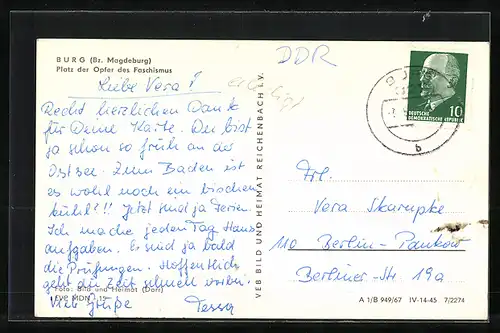 BURG (Bz. Magdeburg)
Platz der Opfer des Faschismus
DDR
Liebe Vera!
erledigt
Recht herzlichen Dank
für Deine Karte. Du bist
ja schon so früh an der
Ostsee. Zum Baden ist
es wohl noch ein bischen
kühl?!! Jetzt sind ja Ferien.
Ich mache jeden Tag Haus
aufgaben. Es sind ja bald
die Prüfungen. Hoffentlich
geht die Zeit schnell vorbei.
Viele Grüße Tessa
Foto: Bild und Heimat (Dorr)
EVP MDN -,15
VEB BILD UND HEIMAT REICHENBACH I. V.
BURG
b
10
DEUTSCHE
DEMOKRATISCHE REPUBLIK
Frl.
Vera Skarupke
110 Berlin-Pankow
Berliner-Str 19a
A 1/B 949/67 IV-14-45 7/2274